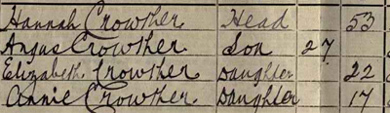 Hannah Crowther Head 53
Angus Crowther Son 27
Elizabeth Crowther Daughter 22
Annie Crowther Daughter 17